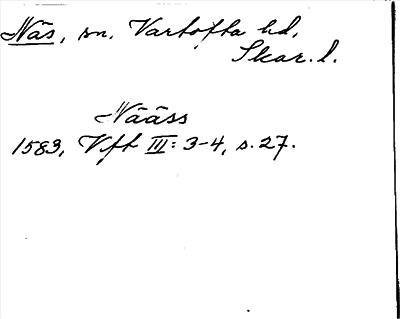 Näs, sn. Vartofta hd,
Skar. l.
Nääss
1583, Vft III: 3-4, s. 27.